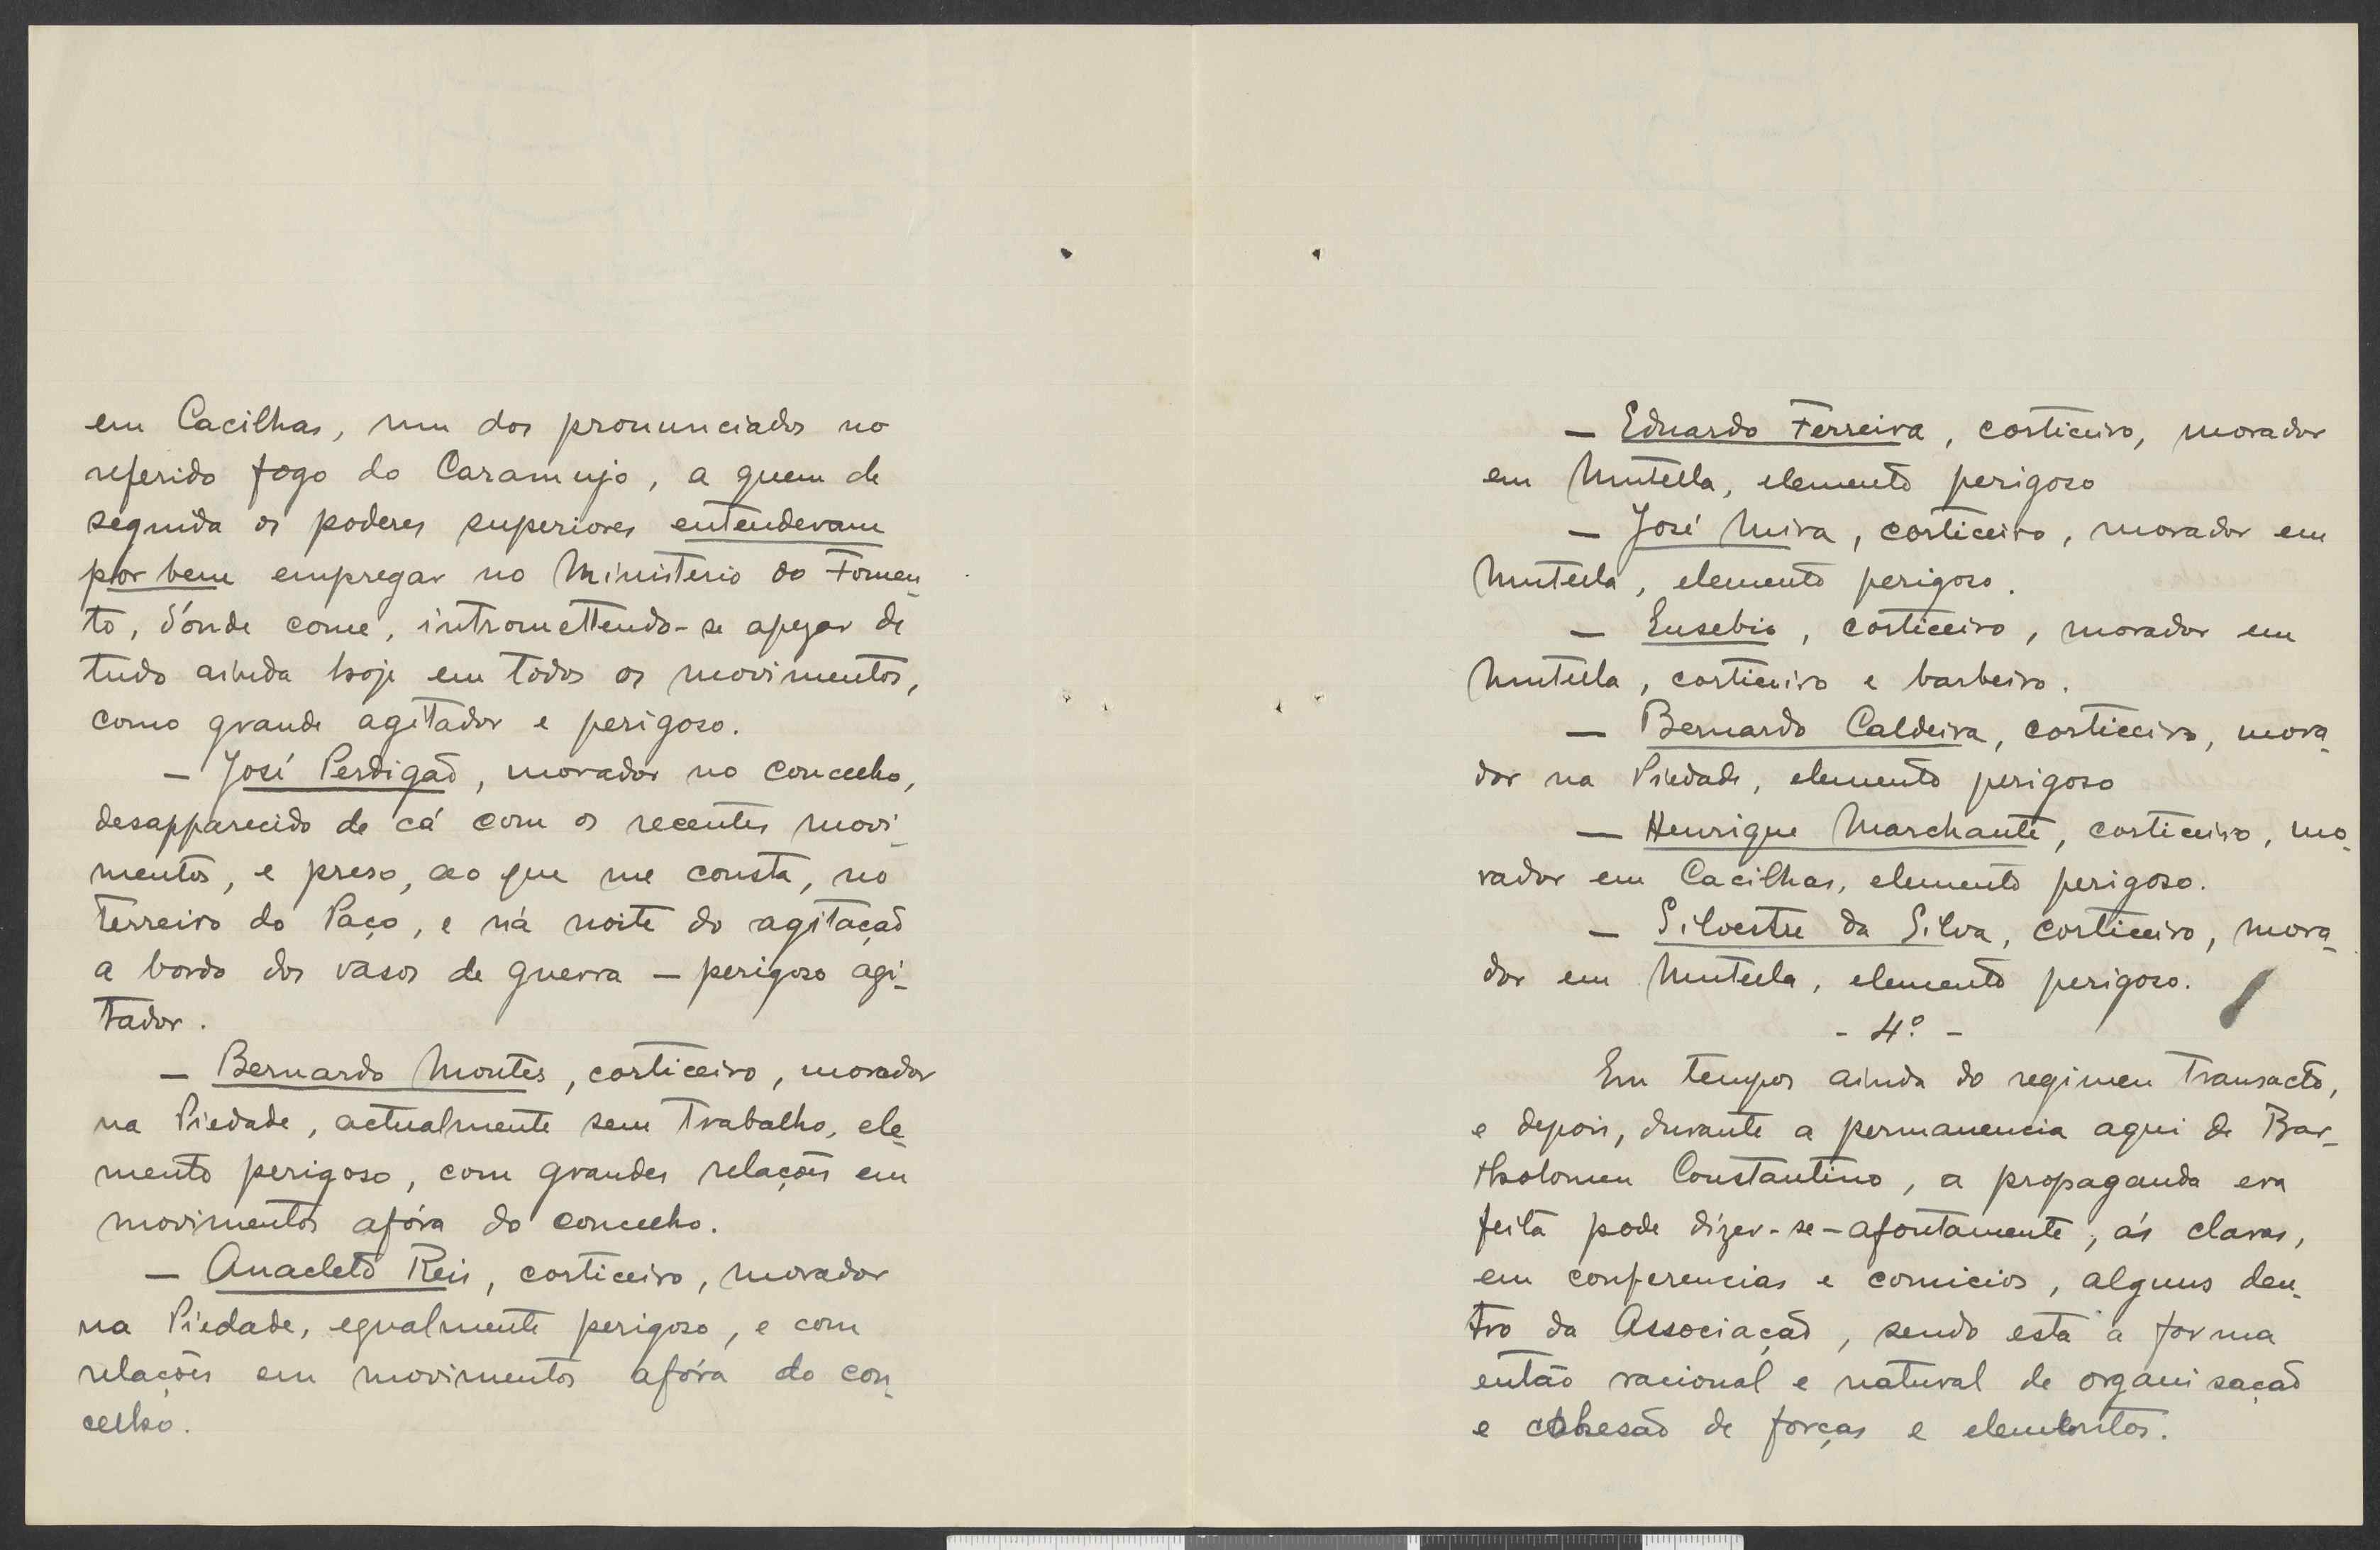 em Cacilhas, um dos pronunciados no
referido fogo do Caramujo, a quem de
seguida os poderes superiores entenderam
por bem empregar no Ministerio do Fomen-
to, d'ónde come, intromettendo-se apezar de
tudo ainda hoje em todos os movimentos,
como grande agitador e perigoso.
- José Perdigão, morador no concelho,
desapparecido de cá com os recentes movi-
mentos, e preso, ao que me consta, no
Terreiro do Paço, e ná noite do agitação
a bordo dos vasos de guerra - perigoso agi-
tador.
- Bernardo Montes, corticeiro, morador
na Piedade, actualmente sem trabalho, ele-
mento perigoso, com grandes relações em
movimentos afóra do concelho.
- Anacleto Reis, corticeiro, morador
na Piedade, egualmente perigoso, e com
relações em movimentos afóra do con-
celho.
- Eduardo Ferreira, corticeiro, morador
em Mutella, elemento perigoso
- José Mira, corticeiro, morador em
Mutella, elemento perigoso.
- Eusebio, corticeiro, morador em
Mutella, corticeiro e barbeiro.
- Bernardo Caldeira, corticeiro, mora-
dor na Piedade, elemento perigoso
- Henrique Marchante, corticeiro, mo-
rador em Cacilhas, elemento perigoso.
- Silvestre da Silva, corticeiro, mora-
dor em Mutella, elemento perigoso.
- 4º -
Em tempos ainda do regimen transacto,
e depois, durante a permanencia aqui de Bar-
tholomeu Constantino, a propaganda era
feita pode dizer-se-afoutamente, ás claras,
em conferencias e comicios, alguns den-
tro da Associação, sendo esta a forma
então racional e natural de organisação
e cohesão de forças e elementos.